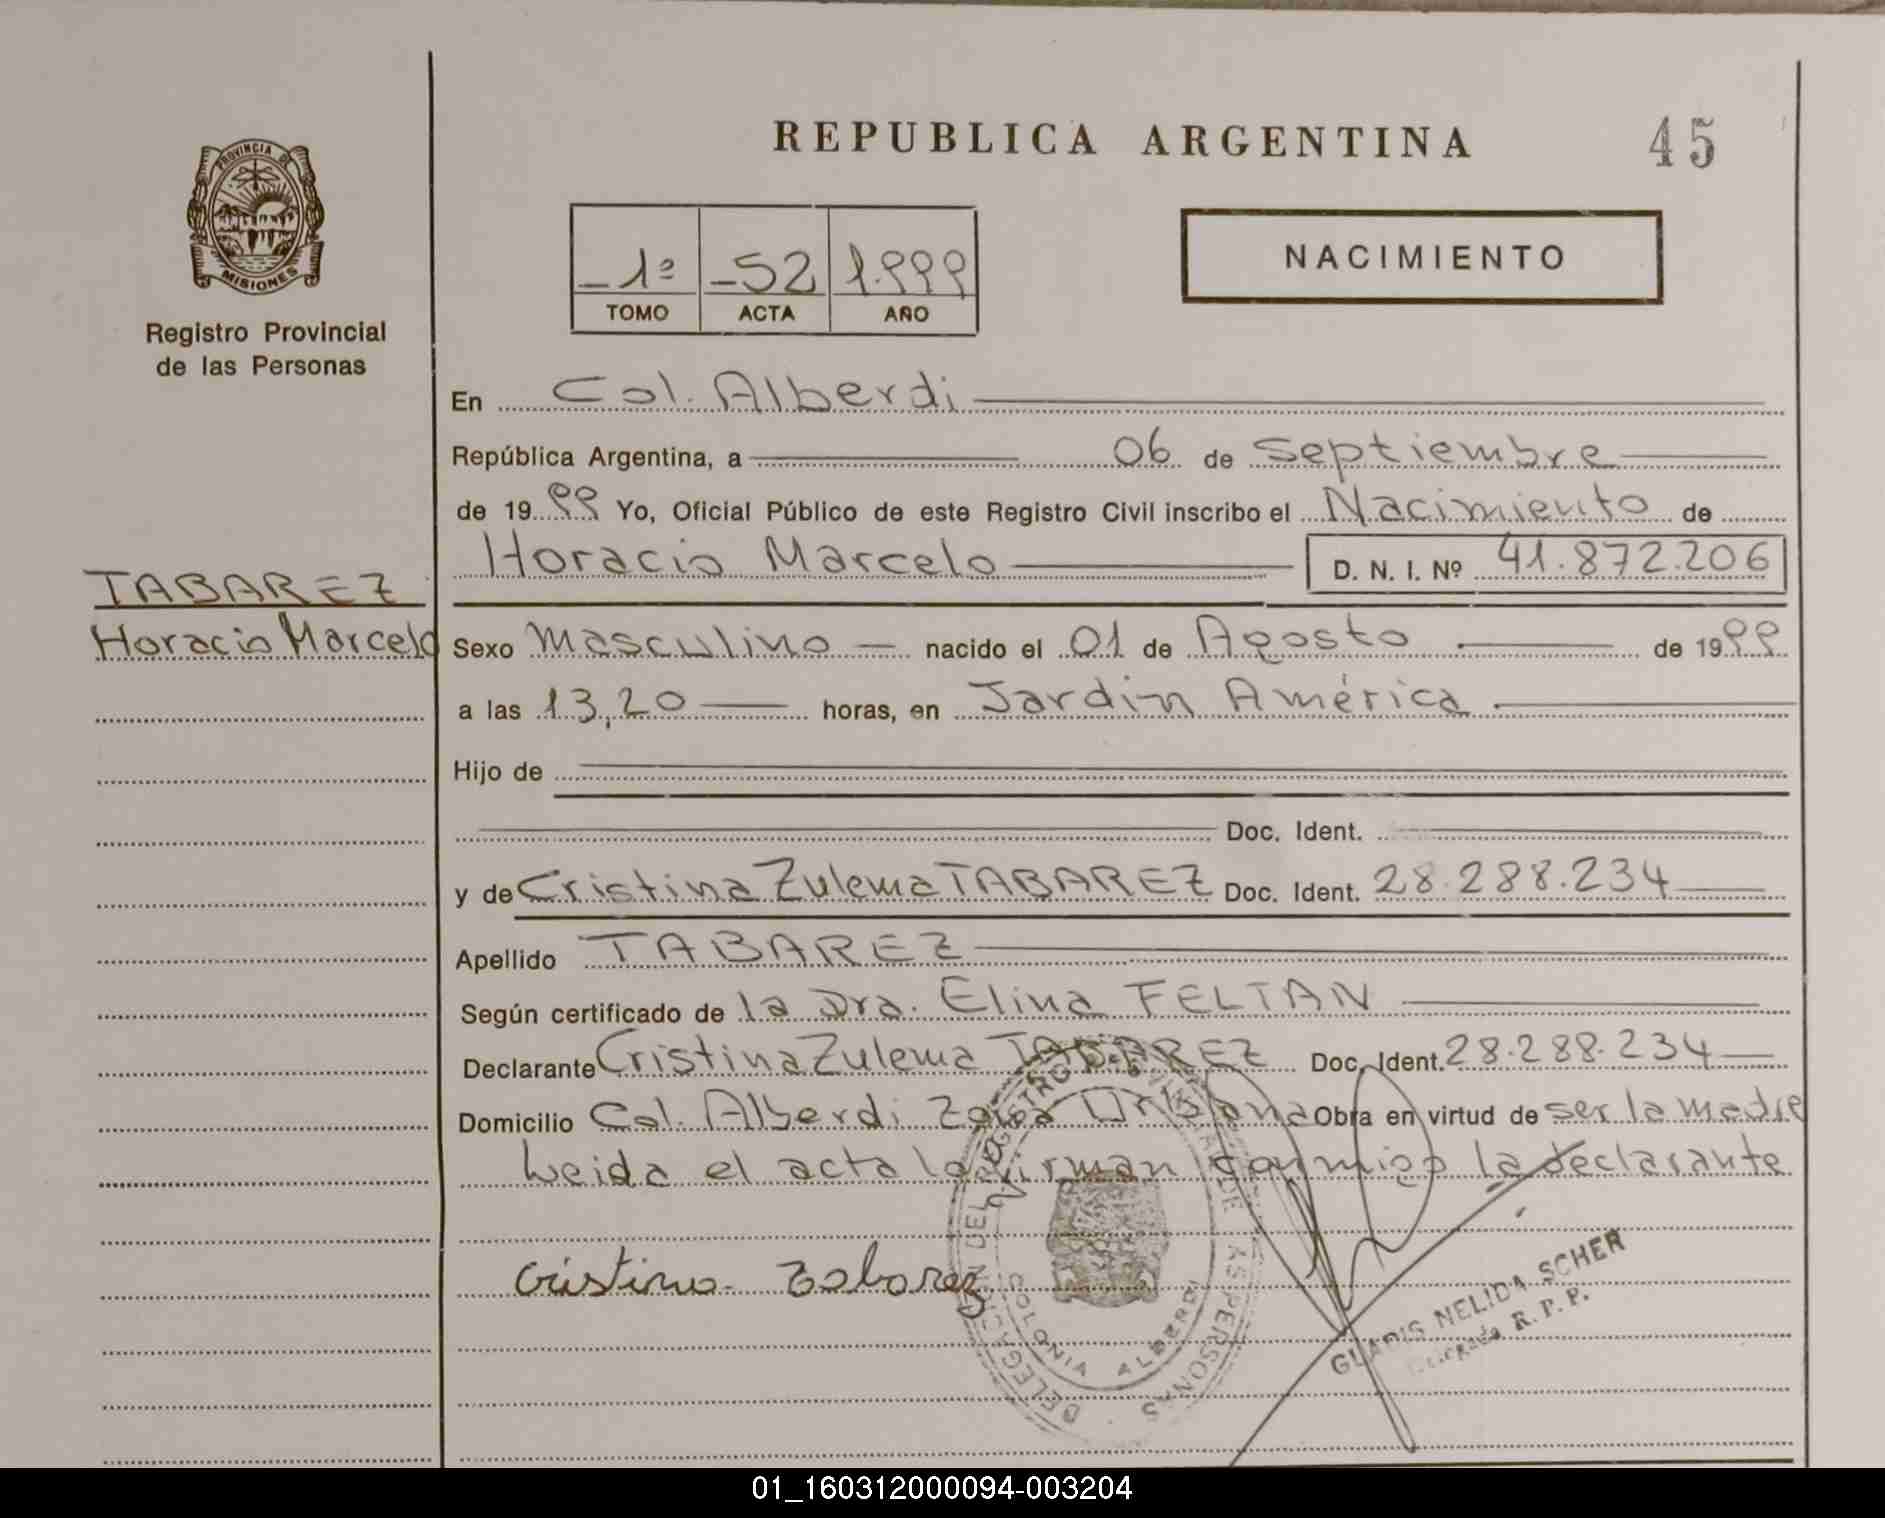 REPUBLICA ARGENTINA
45
PROVINCIA DE
MISIONES
Registro Provincial
de las Personas
1º -52 1.999
TOMO ACTA AÑO
NACIMIENTO
En Col. Alberdi
República Argentina, a 06 de Septiembre
de 1999 Yo, Oficial Público de este Registro Civil inscribo el Nacimiento de
Horacio Marcelo D. N. I. Nº 41.872.206
TABAREZ
Horacio Marcelo
Sexo Masculino nacido el 01 de Agosto de 1999
a las 13,20 horas, en Jardin América
Hijo de
Doc. Ident.
y de Cristina Zulema TABAREZ Doc. Ident. 28.288.234
Apellido TABAREZ
Según certificado de la Dra. Elina FELTAN
Declarante Cristina Zulema TABAREZ Doc. Ident. 28.288.234
Domicilio Col. Alberdi Zona Urbana Obra en virtud de ser la madre
Leida el acta la firman conmigo la declarante
Cristina Tabarez
DELEGACION DEL REGISTRO PROVINCIAL DE LAS PERSONAS
COLONIA ALBERDI
GLADIS NELIDA SCHER
Delegada R. P. P.
01_160312000094-003204